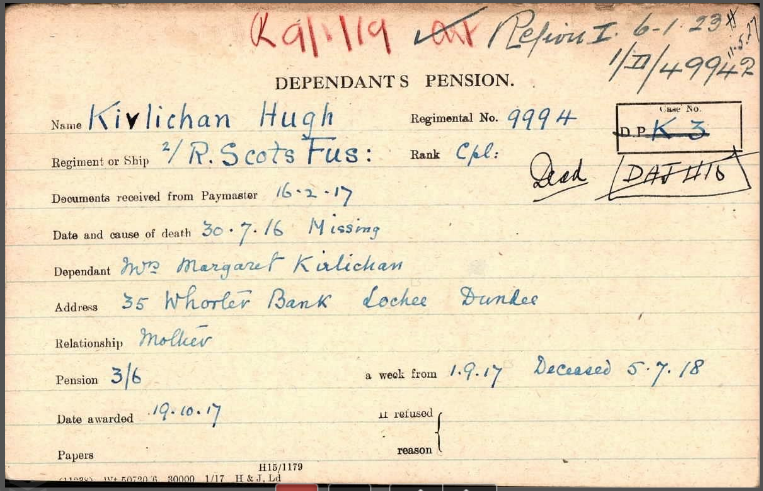 R 9/1/19 Region I. 6-1-23
1/D/49942
DEPENDANTS PENSION.
Name Kirlichan Hugh Regimental No. 9994 Case No.
Regiment or Ship 2/R. Scots Fus: Rank Cpl: D.P. K 3
Documents received from Paymaster 16-2-17 Dead DAJ 416
Date and cause of death 30.7.16 Missing
Dependant Mrs Margaret Kirlichan
Address 35 Whorter Bank Lochee Dundee
Relationship Mother
Pension 3/6 a week from 1.9.17 Deceased 5.7.18
Date awarded 19.10.17 If refused
reason
Papers
H15/1179
30000 1/17 H & J, Ld